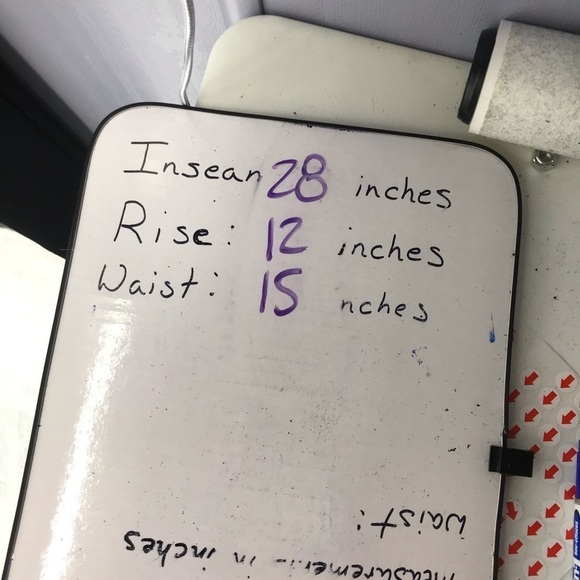 Insean 28 inches
Rise: 12 inches
Waist: 15 nches
waist:
in inches